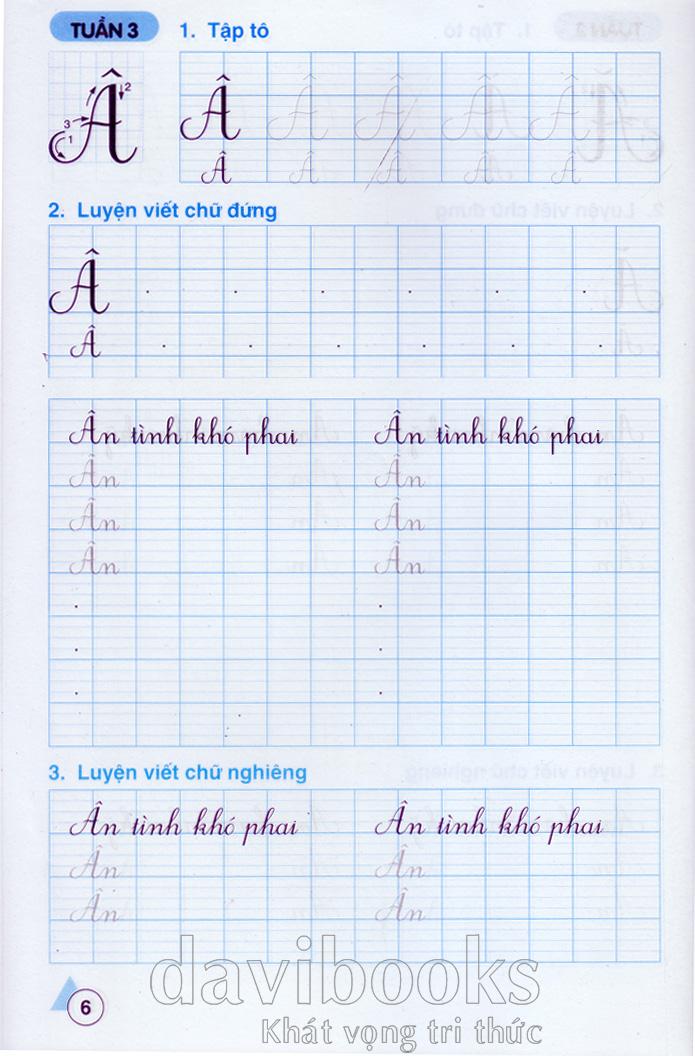 TUẦN 3
1. Tập tô
3 1 2
Â Â Â Â Â
Â Â Â Â Â
2. Luyện viết chữ đứng
Â
Â
Ân tình khó phai Ân tình khó phai
Ân Ân
Ân Ân
Ân Ân
3. Luyện viết chữ nghiêng
Ân tình khó phai Ân tình khó phai
Ân Ân
Ân Ân
davibooks
Khát vọng tri thức
6